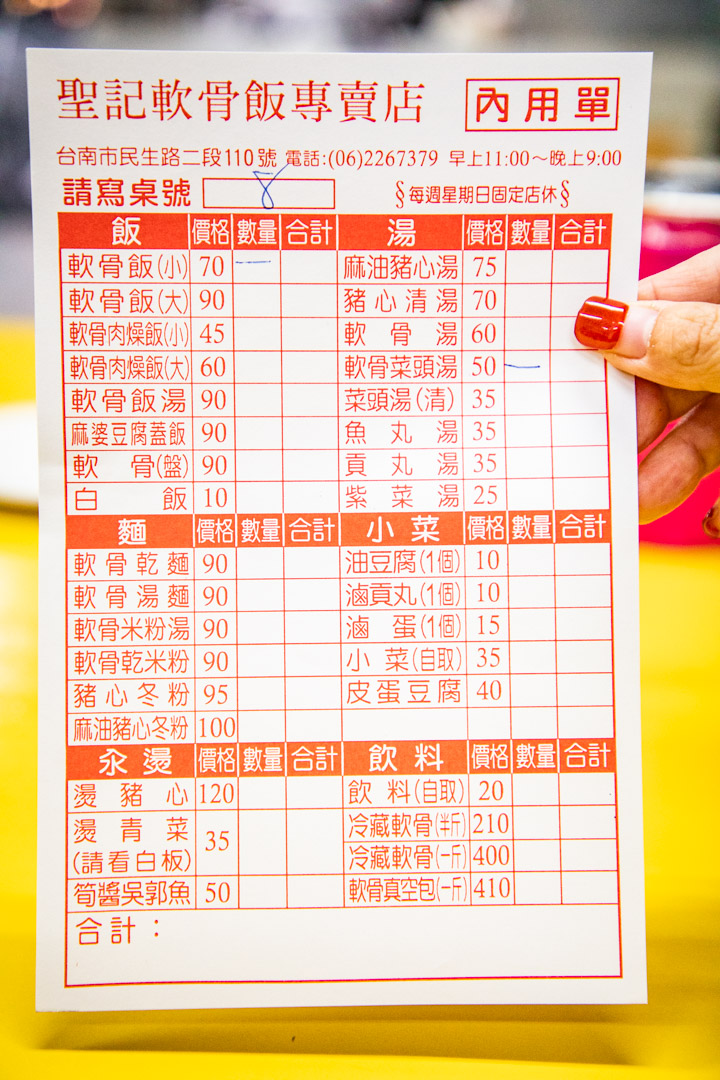 聖記軟骨飯專賣店 內用單
台南市民生路二段110號 電話:(06)2267379 早上11:00～晚上9:00
請寫桌號 8 §每週星期日固定店休§
飯 價格 數量 合計 湯 價格 數量 合計
軟骨飯(小) 70 一 麻油豬心湯 75
軟骨飯(大) 90 豬心清湯 70
軟骨肉燥飯(小) 45 軟骨湯 60
軟骨肉燥飯(大) 60 軟骨菜頭湯 50 一
軟骨飯湯 90 菜頭湯(清) 35
麻婆豆腐蓋飯 90 魚丸湯 35
軟骨(盤) 90 貢丸湯 35
白飯 10 紫菜湯 25
麵 價格 數量 合計 小菜 價格 數量 合計
軟骨乾麵 90 油豆腐(1個) 10
軟骨湯麵 90 滷貢丸(1個) 10
軟骨米粉湯 90 滷蛋(1個) 15
軟骨乾米粉 90 小菜(自取) 35
豬心冬粉 95 皮蛋豆腐 40
麻油豬心冬粉 100
汆燙 價格 數量 合計 飲料 價格 數量 合計
燙豬心 120 飲料(自取) 20
燙青菜 35 冷藏軟骨(半斤) 210
(請看白板) 冷藏軟骨(一斤) 400
筍醬吳郭魚 50 軟骨真空包(一斤) 410
合計：